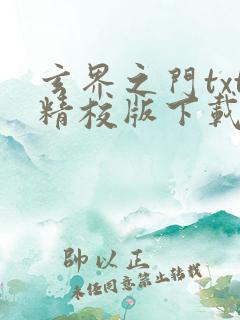 玄界之門txt
精校版下載
帥以正
未经同意禁止转载